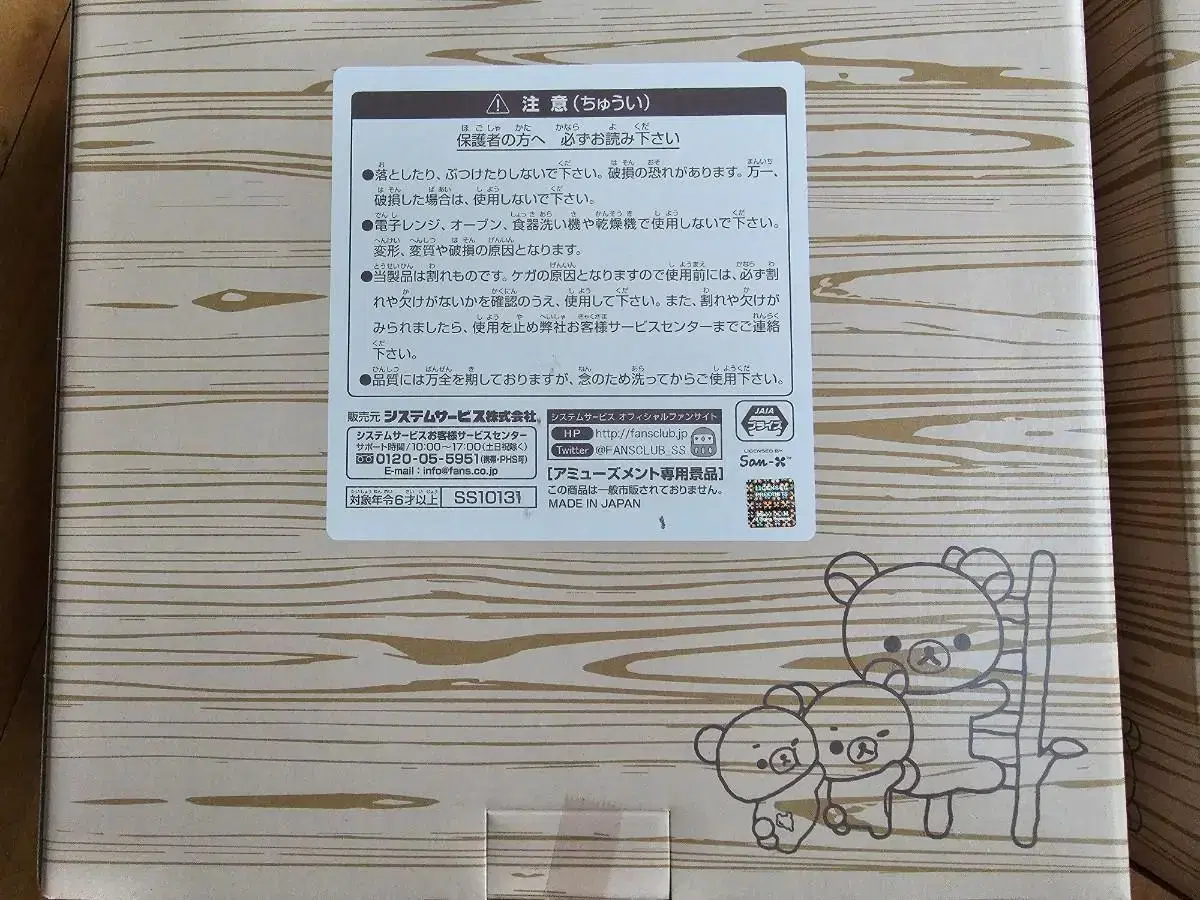 ⚠ 注意(ちゅうい)
保護者の方へ 必ずお読み下さい
●落としたり、ぶつけたりしないで下さい。破損の恐れがあります。万一、
破損した場合は、使用しないで下さい。
●電子レンジ、オーブン、食器洗い機や乾燥機で使用しないで下さい。
変形、変質や破損の原因となります。
●当製品は割れものです。ケガの原因となりますので使用前には、必ず割
れや欠けがないかを確認のうえ、使用して下さい。また、割れや欠けが
みられましたら、使用を止め弊社お客様サービスセンターまでご連絡
下さい。
●品質には万全を期しておりますが、念のため洗ってからご使用下さい。
販売元 システムサービス株式会社
システムサービスお客様サービスセンター
サポート時間/10:00〜17:00(土日祝除く)
0120-05-5951(携帯・PHS可)
E-mail:info@fans.co.jp
対象年令6才以上 SS10131
システムサービス オフィシャルファンサイト
HP http://fansclub.jp
Twitter @FANSCLUB_SS
[アミューズメント専用景品]
この商品は一般市販されておりません。
MADE IN JAPAN
JAIA
プライズ
LICENSED BY
San-X
LICENSED
PRODUCTS